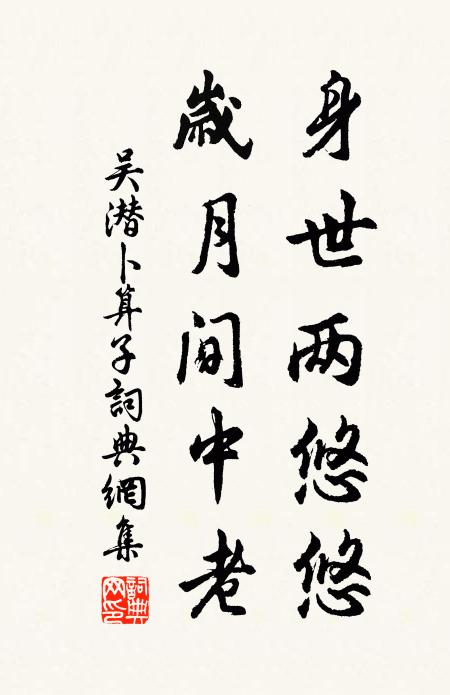 身世两悠悠
歲月间中老
吴潜卜算子詞典網集
詞典网印